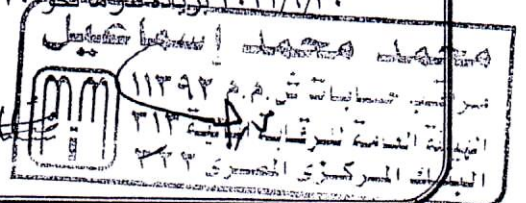 محمد محمد إسماعيل
مراقب حسابات ش.م.م ١١٣٩٢
الهيئة العامة للرقابة المالية ٣١٣
البنك المركزى المصرى ٣٢٣